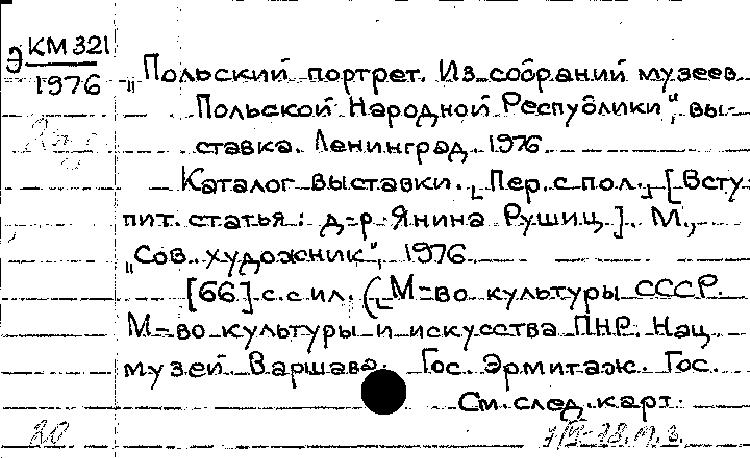 Э КМ 321
1976
„Польский портрет. Из собраний музеев
Польской Народной Республики“, вы-
ставка. Ленинград. 1976.
Каталог выставки. [Пер. с пол.] [Всту-
пит. статья: д-р Янина Рушиц]. М.,
„Сов. художник“, 1976.
[66] с. с ил. (М-во культуры СССР.
М-во культуры и искусства ПНР. Нац.
музей. Варшава. Гос. Эрмитаж. Гос.
См. след. карт.